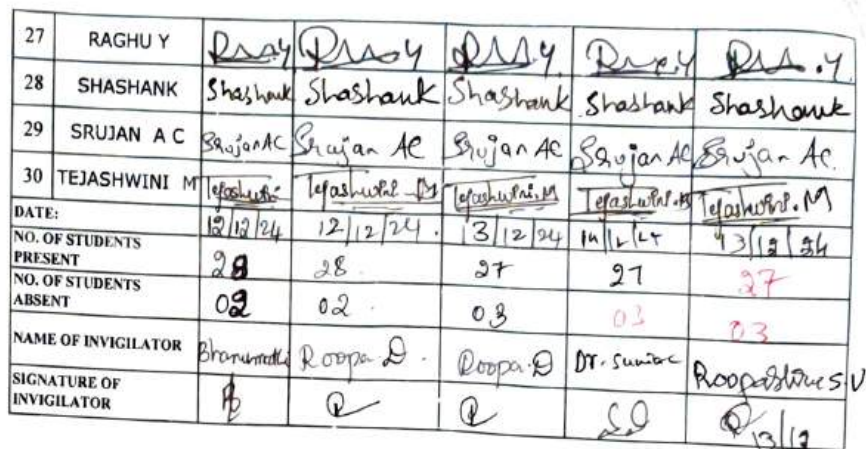 27 RAGHU Y
28 SHASHANK Shashank Shashank Shashank Shashank Shashank
29 SRUJAN A C Srujan AC Srujan AC Srujan AC Srujan AC Srujan AC.
30 TEJASHWINI M Tejashwini Tejashwini M Tejashwini.M Tejashwini.M Tejashwini.M
DATE: 12/12/24 12/12/24. 13/12/24 13/12/24
NO. OF STUDENTS PRESENT 28 28 27 27 27
NO. OF STUDENTS ABSENT 02 02 03 03 03
NAME OF INVIGILATOR Bhanumathi Roopa.D. Roopa.D Roopashree S.V
SIGNATURE OF INVIGILATOR 13/12